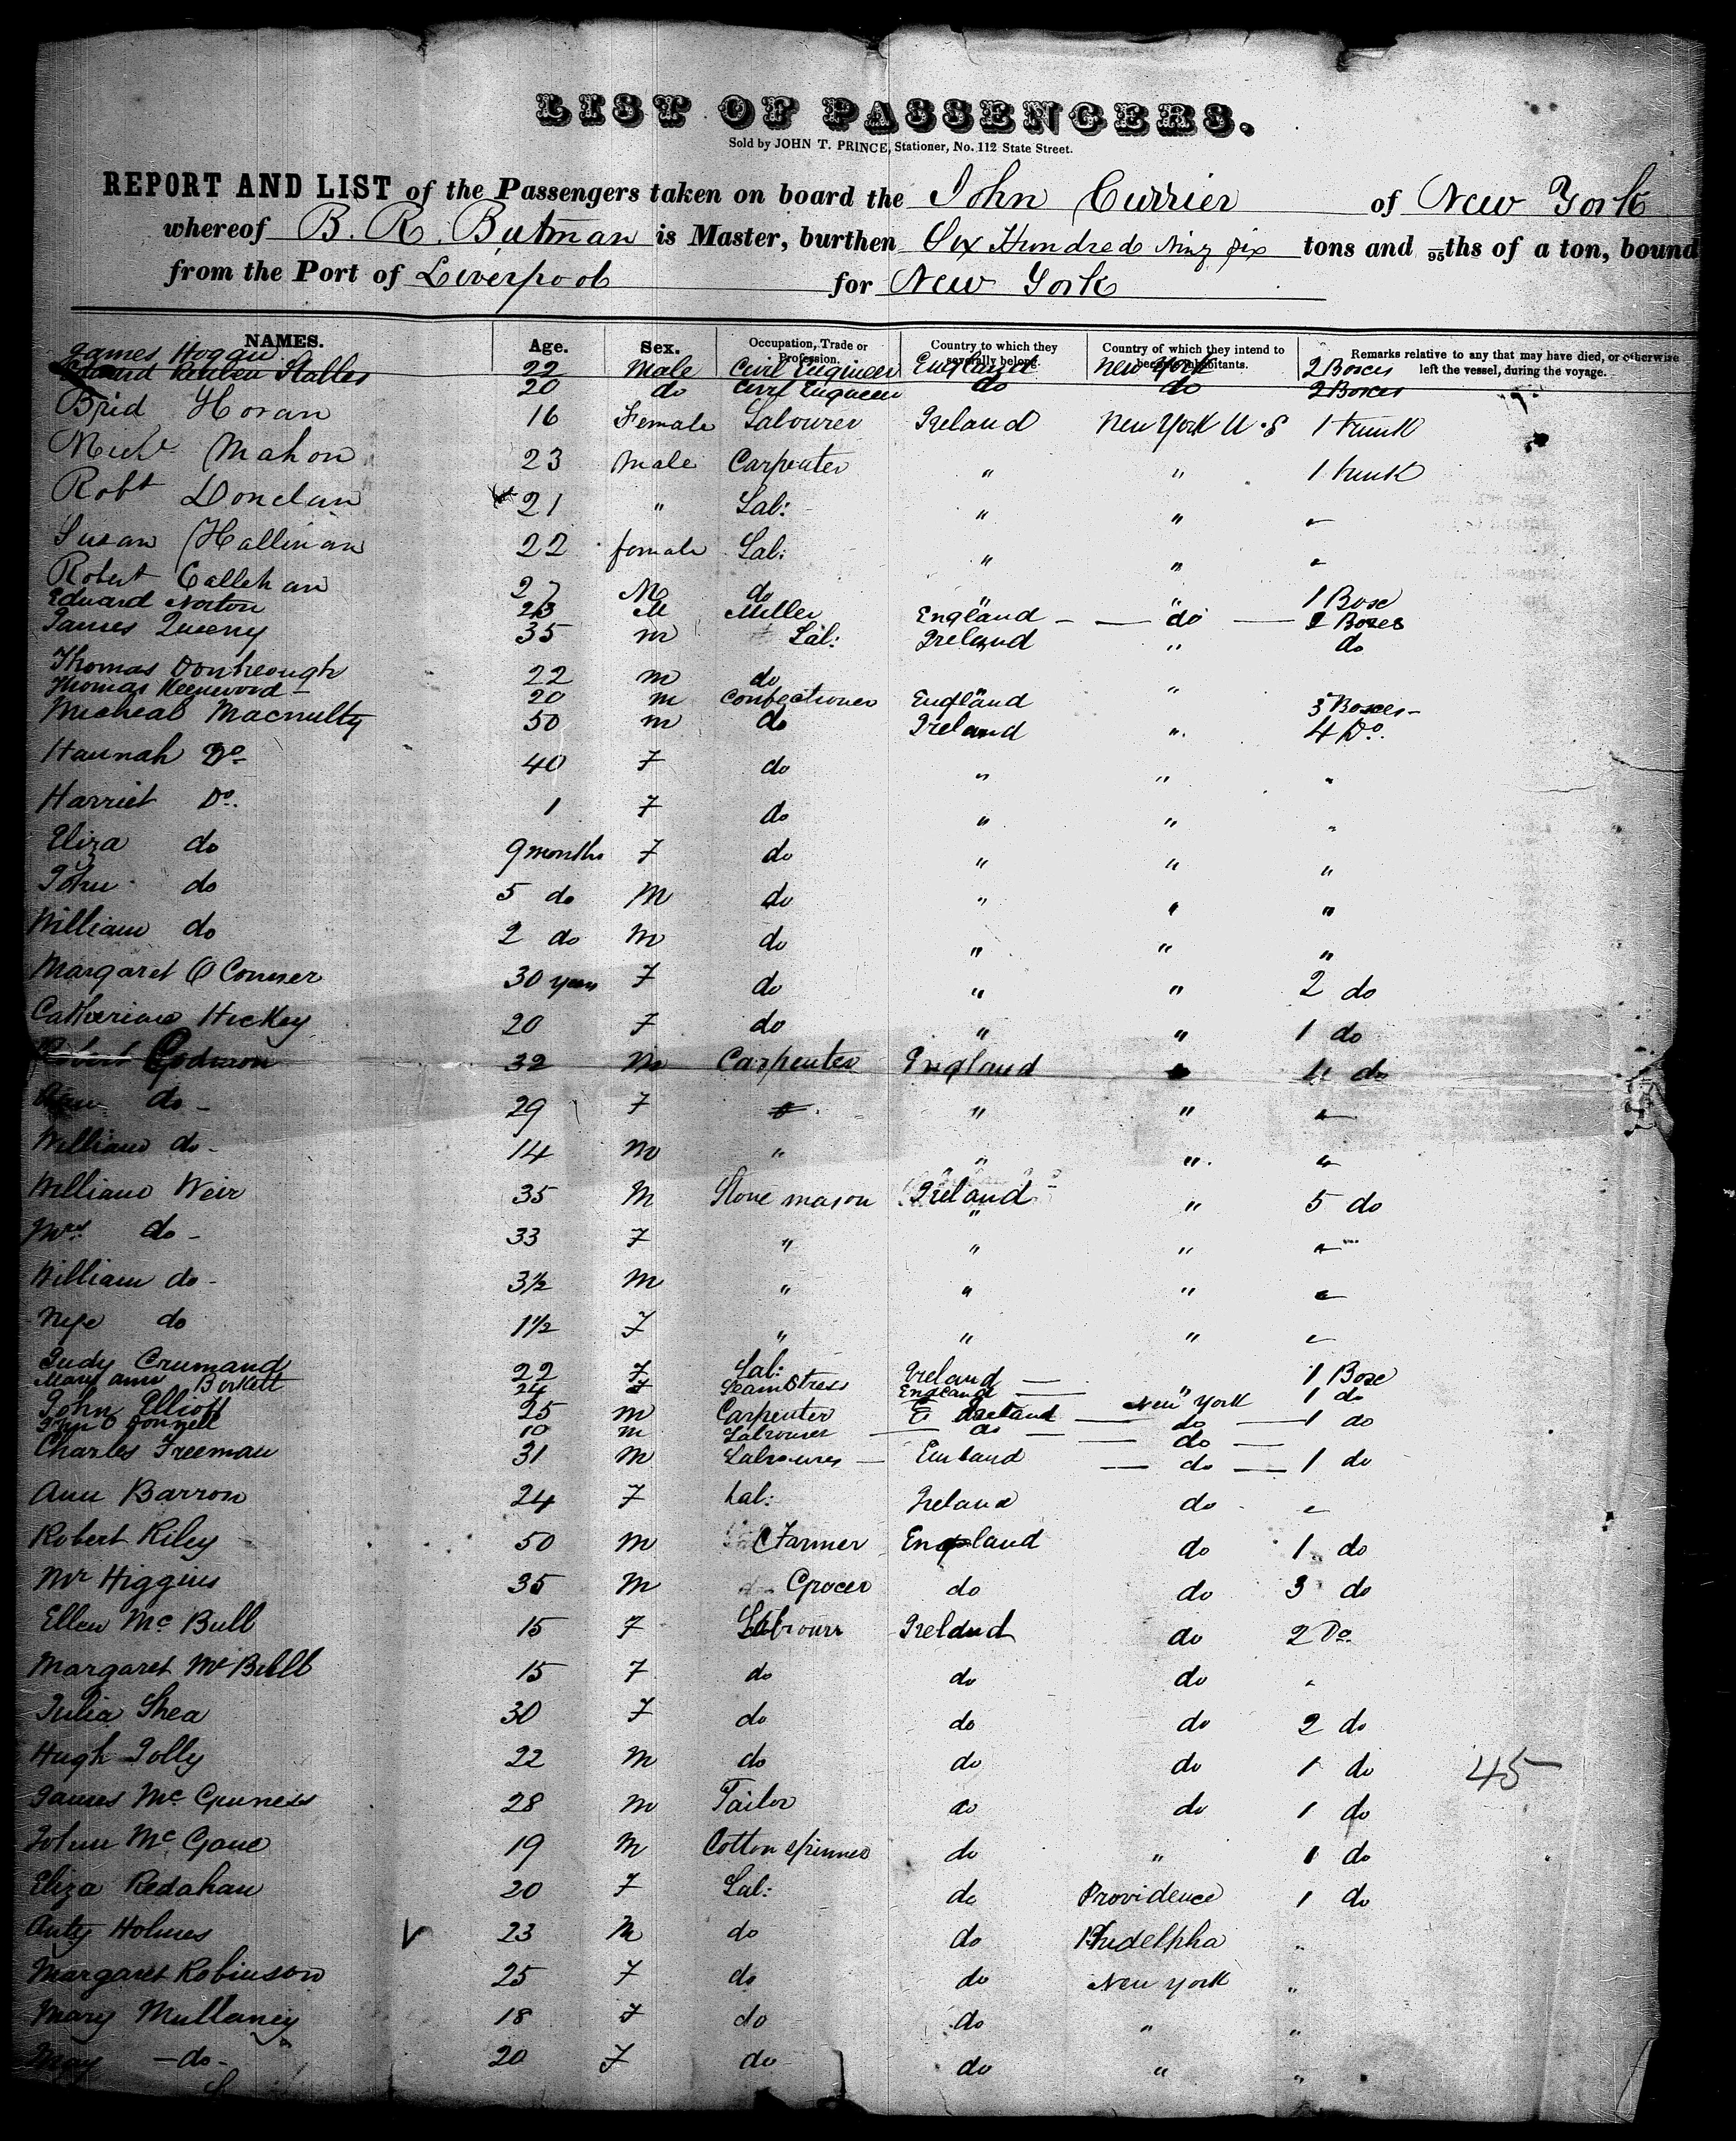 LIST OF PASSENGERS.
Sold by JOHN T. PRINCE, Stationer, No. 112 State Street.
REPORT AND LIST of the Passengers taken on board the John Currier of New York
whereof B. R. Butman is Master, burthen Six Hundred Ninz six tons and 95ths of a ton, bound
from the Port of Liverpool for New York
NAMES. Age. Sex. Occupation, Trade or Profession. Country to which they severally belong. Country of which they intend to become inhabitants. Remarks relative to any that may have died, or otherwise left the vessel, during the voyage.
James Hogan 22 Male Civil Engineer England New York 2 Boxes
Reuben Stalles 20 do Civil Engineer do do 2 Boxes
Brid Horan 16 Female Labourer Ireland New York U.S 1 trunk
Mahon 23 male Carpenter " " 1 trunk
Robt Donelan 21 " Lab: " " "
Susan Hallinan 22 female Lab: " " "
Robert Callehan 27 M do " " 1 Box
Edward Norton 23 M Miller England - — do — 2 Boxes
James Queeny 35 m Lab: Ireland " do
Thomas Donheough 22 m do " "
Thomas Keenwood - 20 m Confectioner England 3 Boxes -
Micheal Macnulty 50 m do Ireland " 4 Do.
Hannah Do 40 F do " " "
Harriet Do. 1 F do " " "
Eliza do 9 months F do " " "
John do 5 do M do " " "
William do 2 do M do " " "
Margaret O Conner 30 years F do " " 2 do
Catherine Hickey 20 F do " " 1 do
Robert 32 M Carpenter England " 4 do
do - 29 F " " "
William do - 14 m " " " "
William Weir 35 M Stone mason Ireland " 5 do
Mrs do - 33 F " " " "
William do - 3½ M " " " "
do 1½ F " " " "
Judy Crumand 22 F Lab: Ireland — " 1 Box
Mary ann Birkett 24 F Seamstress England — New York 1 do
John Elliott 25 m Carpenter Ireland — do — 1 do
John O Donnell 10 m Labourer — do — — do —
Charles Freeman 31 M Labourer — — do — 1 do
Ann Barron 24 F Lab: Ireland do "
Robert Riley 50 m Farmer England do 1 do
Mr Higgins 35 M Grocer do do 3 do
Ellen Mc Bull 15 F Labourr Ireland do 2 Do.
Margaret Mc Bull 15 F do do do "
Julia Shea 30 F do do do 2 do
Hugh Jolly 22 M do do do 1 do
45
James Mc Guness 28 m Tailor do do 1 do
John Mc Gane 19 M Cotton spinner do " 1 do
Eliza Redahan 20 F Lab: do Providence 1 do
Anty Holmes 23 M do do Phidelpha "
Margaret Robinson 25 F do do New York "
Mary Mullaney 18 F do do " "
May - do - 20 F do do " "